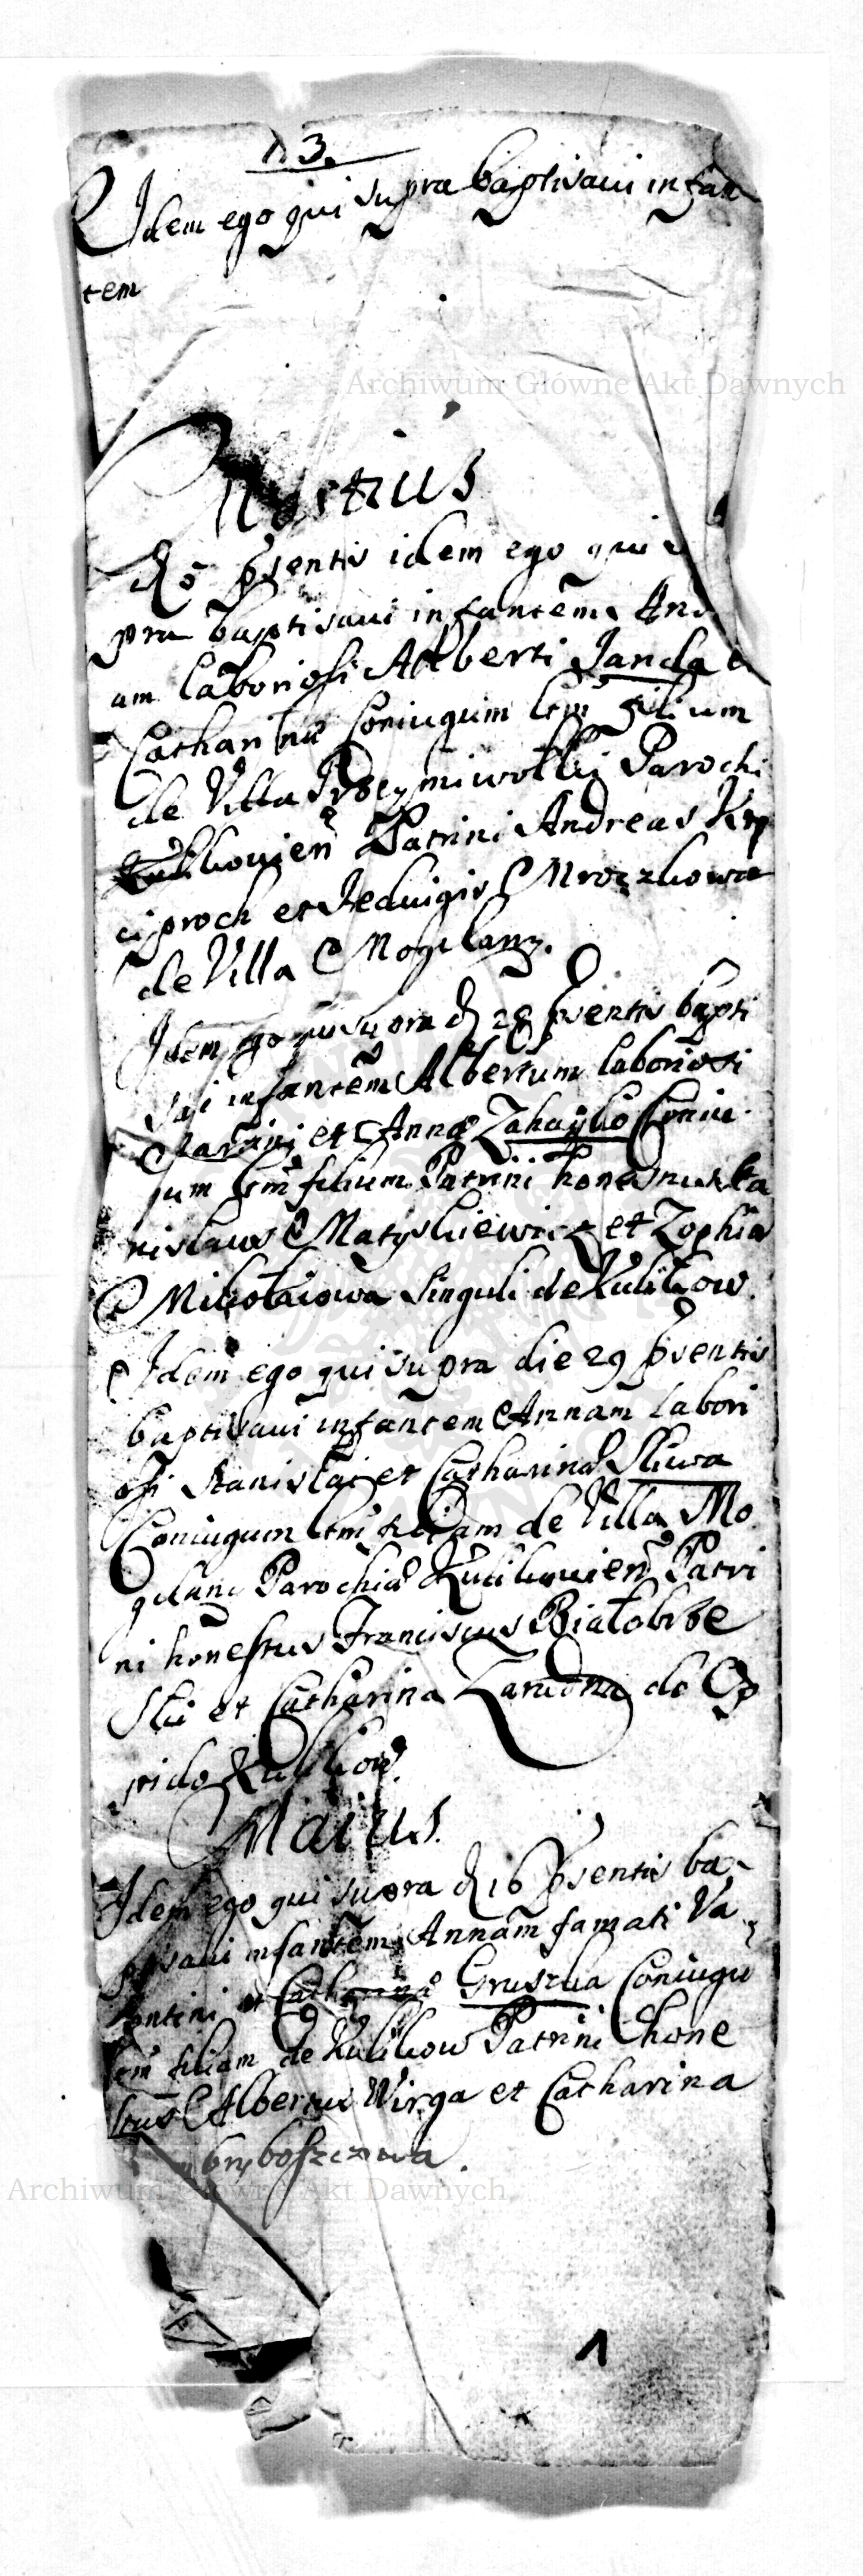 n 3.
Idem ego qui supra baptisavi infan
tem
Archiwum Główne Akt Dawnych
Martius
d 5 psentis idem ego qui
pra baptisavi infantem
am laboriosi Alberti Janda
Catharinæ Coniugum ltm filium
de Villa Parochi
Kulikovien Patrini Andreas
et Hedvigis Mrozkowa
de Villa Mogilany.
Idem ego qui supra d 28 psentis bapti
savi infantem Albertum laboriosi
et Annæ Zahaylo Coniu
gum ltm filium Patrini honestus Sta
nislaus Matyskiewicz et Zophia
Mikołaiowa singuli de Kulikow.
Idem ego qui supra die 29 psentis
baptisavi infantem Annam labori
osi Stanislai et Catharinæ Sliwa
Coniugum ltm filiam de Villa Mo
gilani Parochiæ Kulikovien Patri
ni honestus Franciscus Białobrze
ski et Catharina de Op
pido Kulikow.
Maius.
Idem ego qui supra d 16 psentis ba
ptisavi infantem Annam famati Va
lentini et Catharinæ Gruszka Coniugu
ltm filiam de Kulikow Patrini hone
stus Albertus Wirga et Catharina
Archiwum Główne Akt Dawnych
1